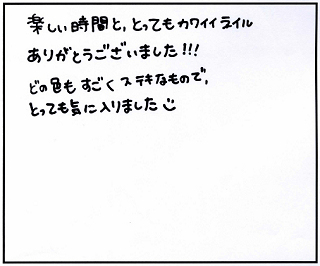 楽しい時間と,とってもカワイイライル
ありがとうございました!!!
どの色もすごくステキなもので,
とっても気に入りました